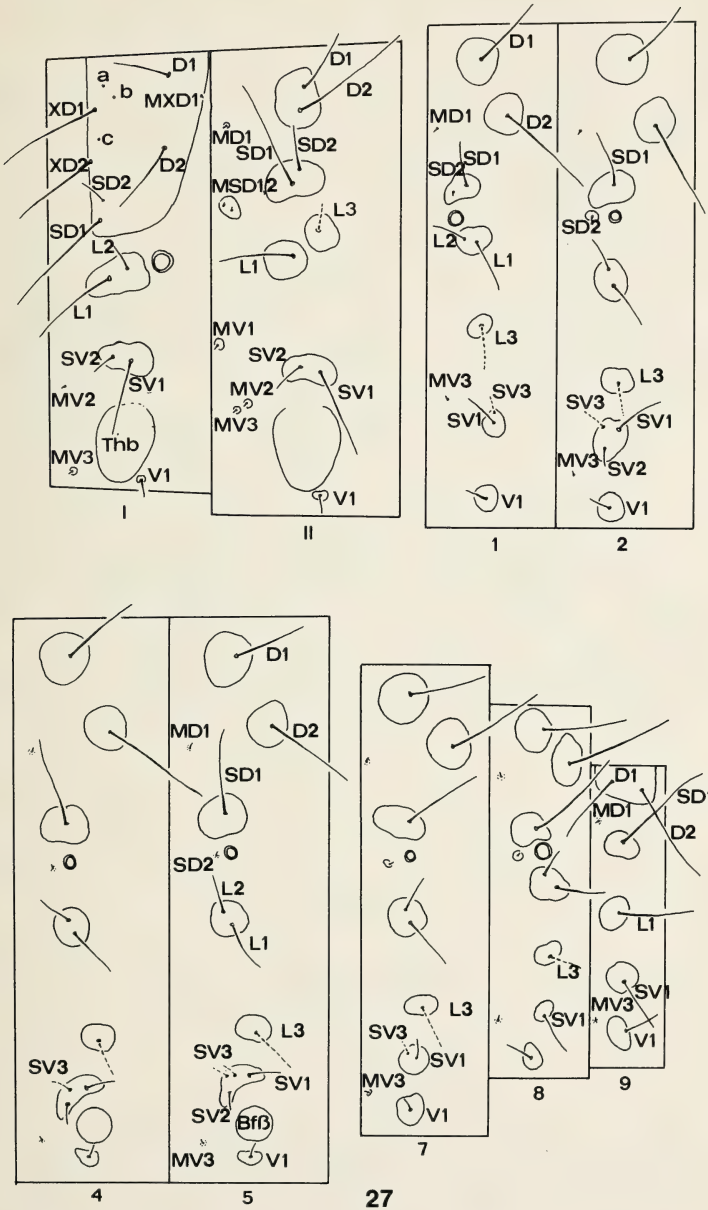 a
D1
b
MXD1
XD1
c
XD2
D2
SD2
SD1
L2
L1
SV2
SV1
MV2
Thb
MV3
V1
I
D1
D2
MD1
SD1
SD2
MSD1/2
L3
L1
MV1
SV2
MV2
SV1
MV3
V1
II
D1
MD1
D2
SD1
SD2
L2
L1
L3
MV3
SV3
SV1
V1
1
SD1
SD2
L3
SV3
SV1
MV3
SV2
V1
2
SV3
4
D1
MD1
D2
SD1
SD2
L2
L1
L3
SV3
SV1
SV2
Bfß
MV3
V1
5
L3
SV3
SV1
MV3
V1
7
L3
SV1
8
D1
SD1
MD1
D2
L1
SV1
MV3
V1
9
27